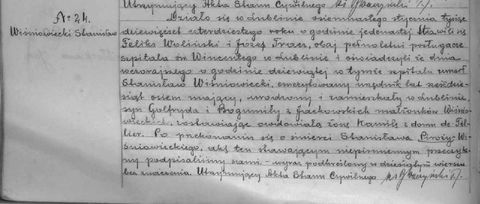 Utrzymujący Akta Stanu Cywilnego
No 24.
Wiśniowiecki Stanisław
Działo się w Lublinie siemnastego stycznia tysiąc
dziewięćset czterdziestego roku o godzinie jedenastej. Stawili się
Feliks Woliński i Józef Tracz, obaj pełnoletni posługacze
szpitala św. Wincentego w Lublinie i oświadczyli, że dnia
wczorajszego o godzinie dziewiątej w tymże szpitalu umarł
Stanisław Wiśniowiecki, emerytowany urzędnik lat sześćdzie-
siąt osiem mający, urodzony i zamieszkały w Lublinie,
syn i Bogumiły z małżonków Wiśnio-
wieckich, zostawiając owdowiałą żonę Kamilę z domu de Tel-
lier. Po przekonaniu się o śmierci Stanisława Wi-
śniowieckiego, akt ten stawającym niepiśmiennym przeczyta-
ny, podpisaliśmy sami. wyraz podkreślony w dziesiątym wierszu
bez znaczenia. Utrzymujący Akta Stanu Cywilnego